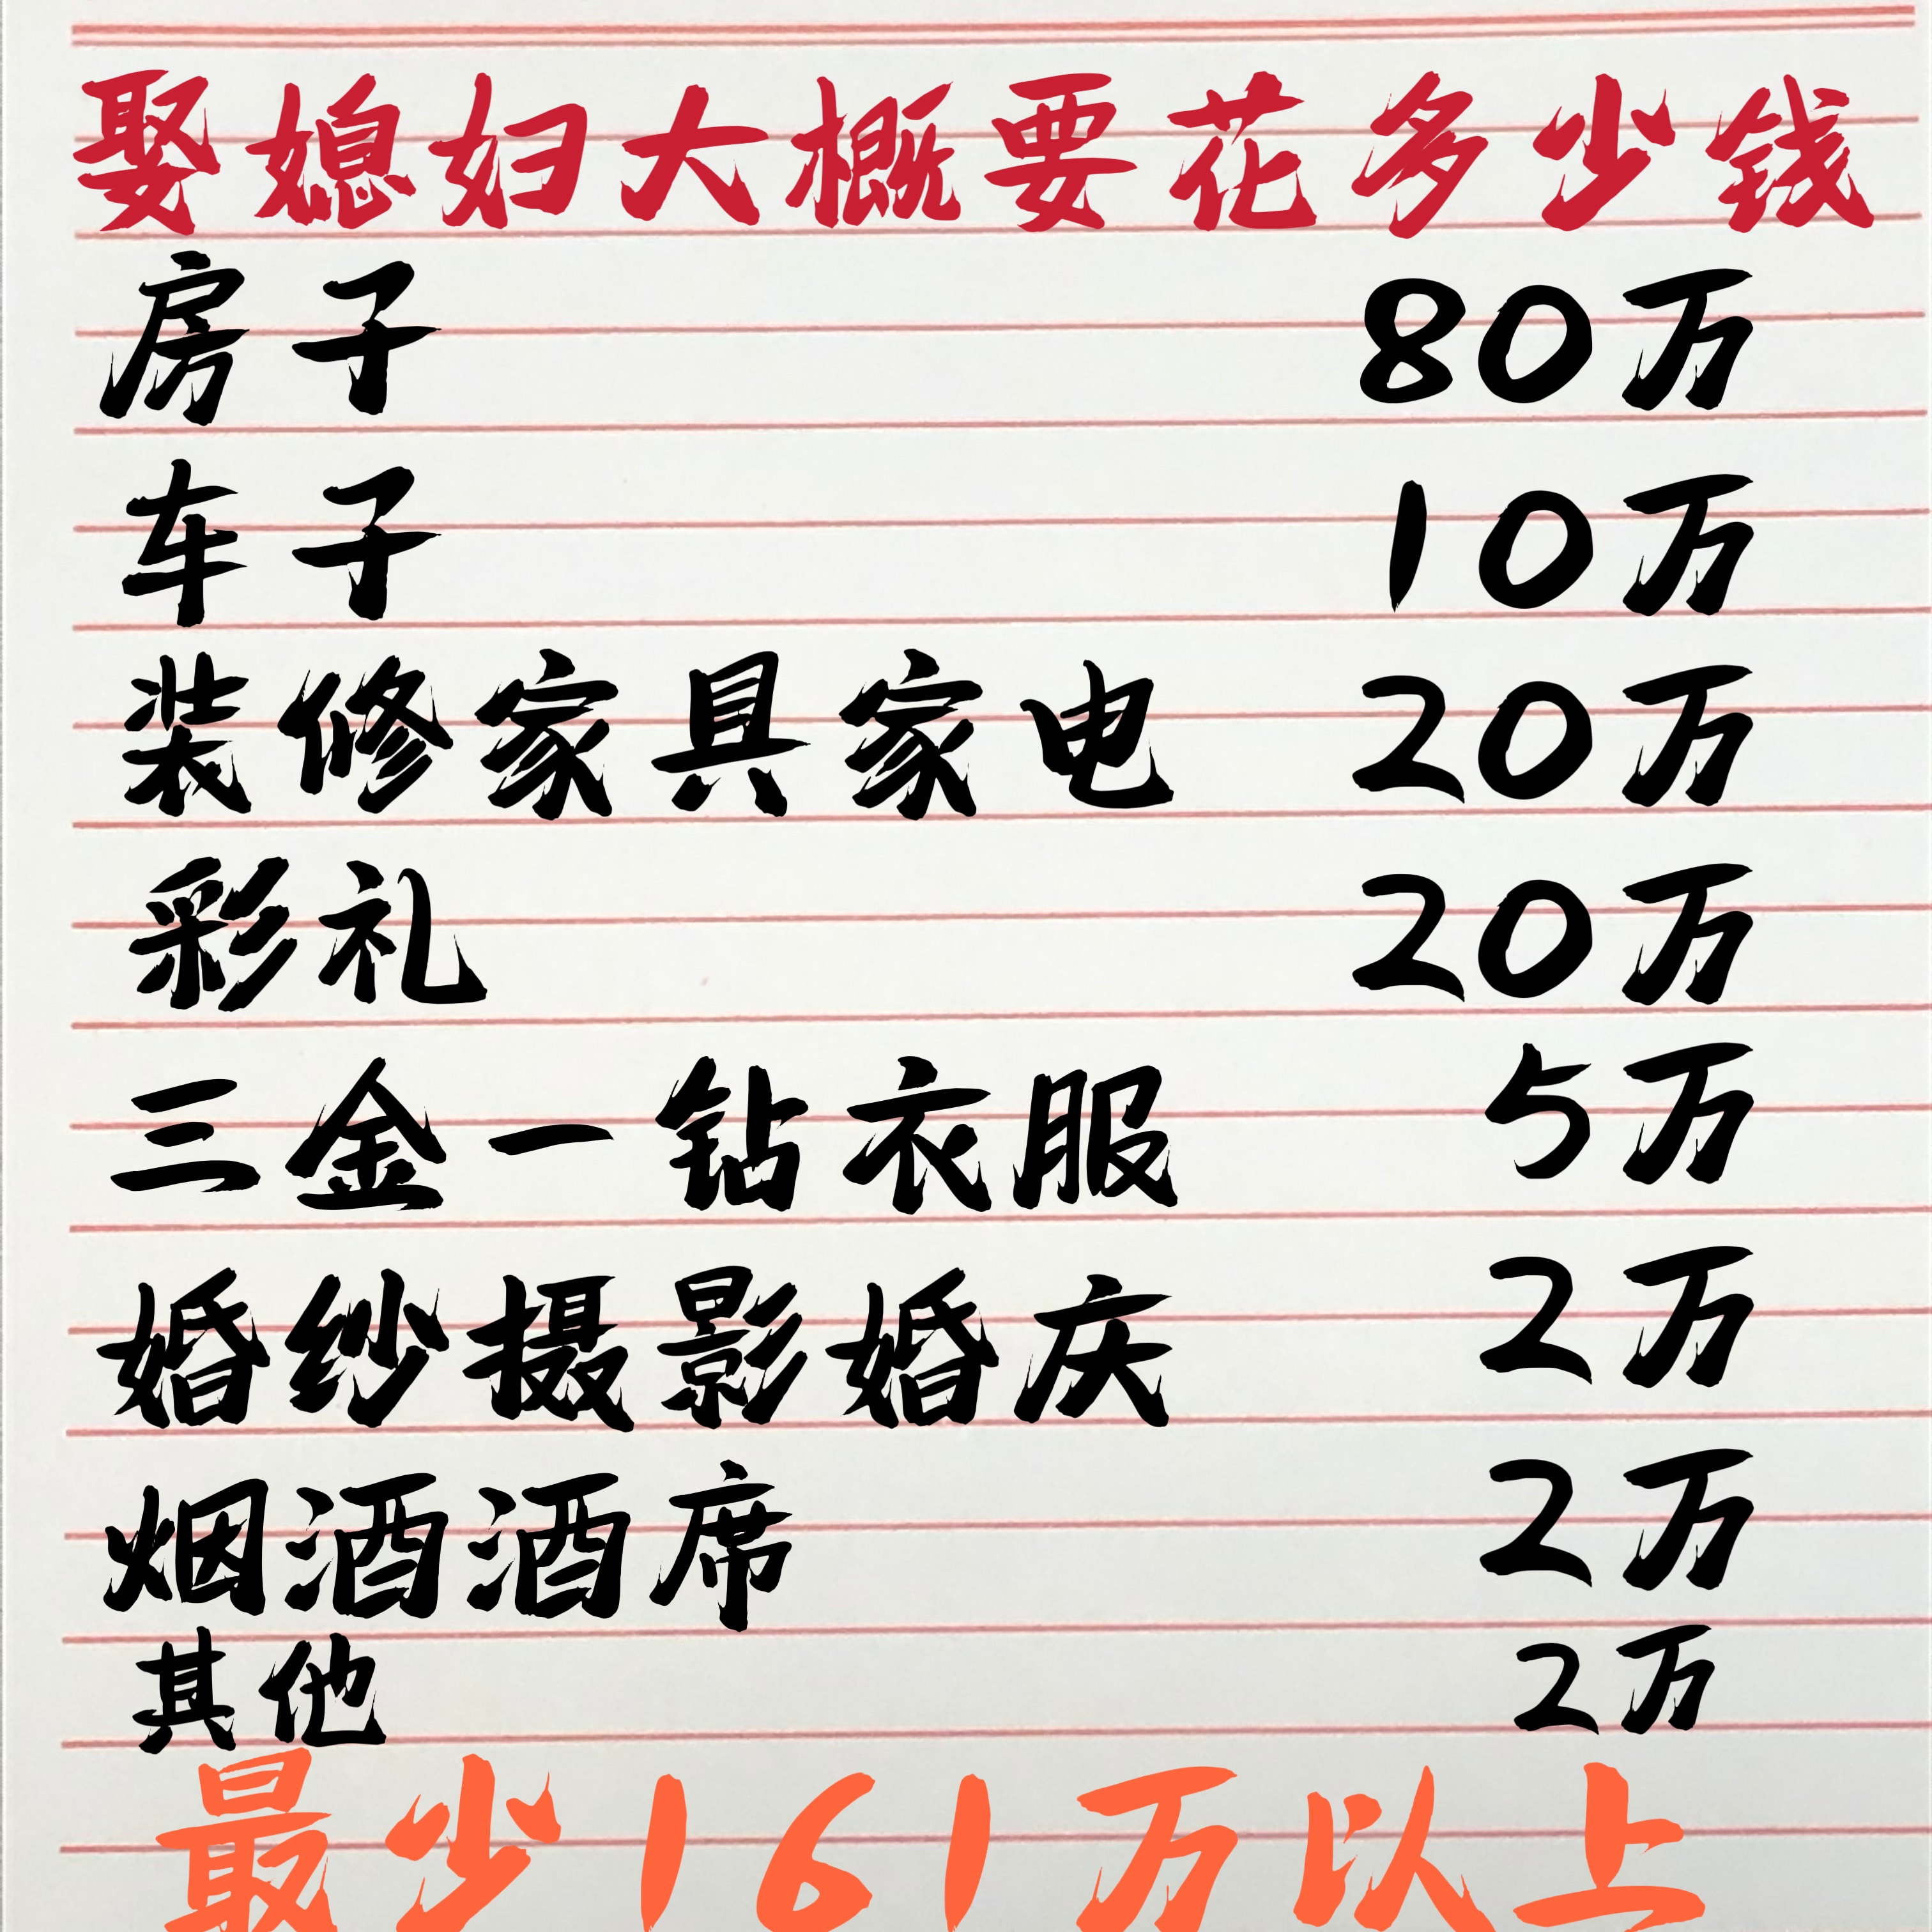 娶媳妇大概要花多少钱
房子 80万
车子 10万
装修家具家电 20万
彩礼 20万
三金一钻衣服 5万
婚纱摄影婚庆 2万
烟酒酒席 2万
其他 2万
最少161万以上